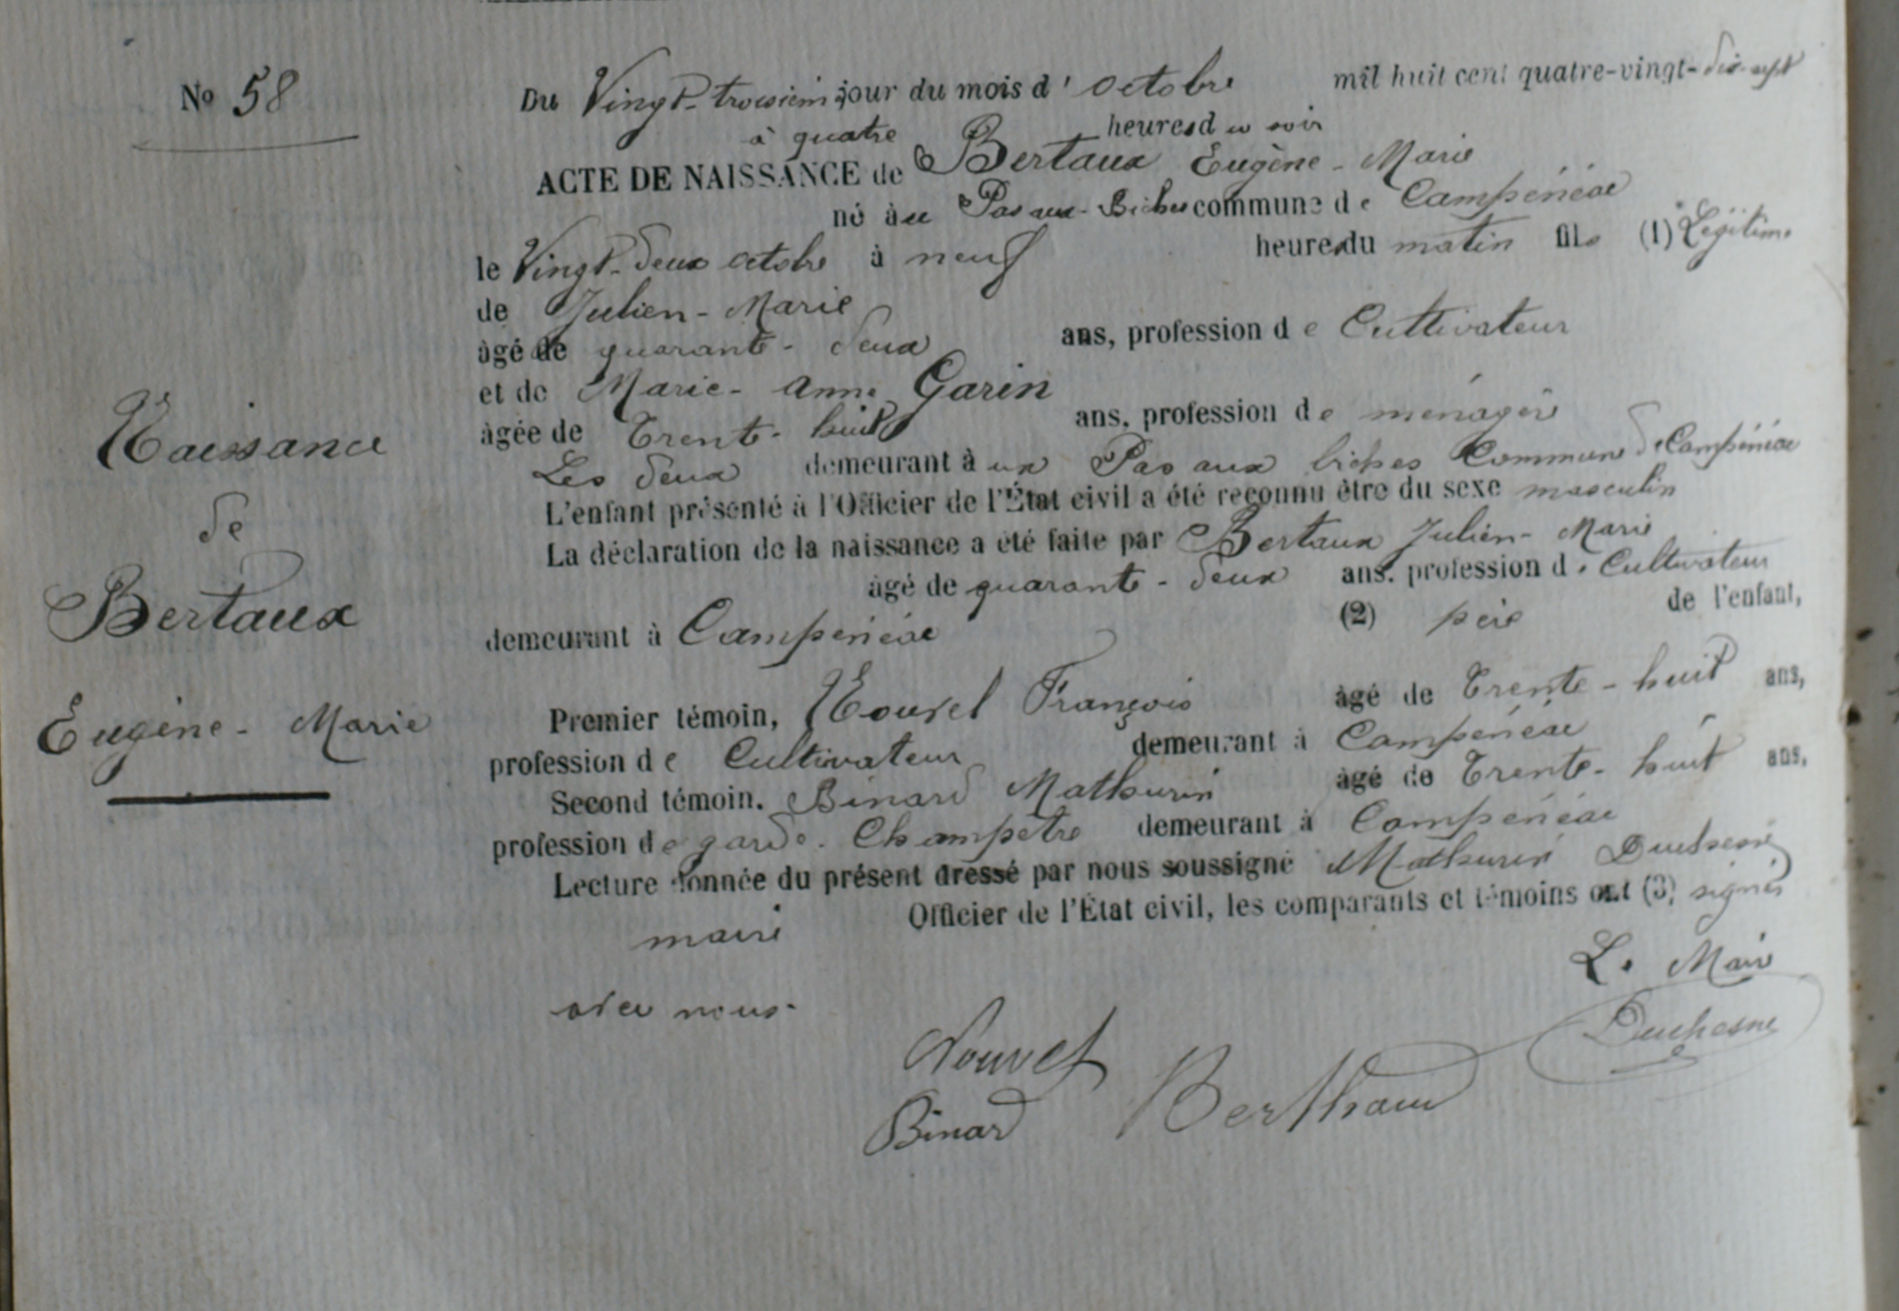 No 58
Du Vingt-troisième jour du mois d' octobre mil huit cent quatre-vingt-dix-sept
à quatre heures du soir
ACTE DE NAISSANCE de Bertaux Eugène-Marie
né au Pas aux-Biches commune de Campénéac
le Vingt-deux octobre à neuf heures du matin fils (1) Légitime
de Julien-Marie
âgé de quarante-deux ans, profession de Cultivateur
et de Marie-Anne Garin
âgée de Trente-huit ans, profession de ménagère
Les deux demeurant à au Pas aux biches Commune de Campénéac
L'enfant présenté à l'Officier de l'État civil a été reconnu être du sexe masculin
La déclaration de la naissance a été faite par Bertaux Julien-Marie
âgé de quarante-deux ans. profession de Cultivateur
demeurant à Campénéac (2) père de l'enfant,
Premier témoin, Nouvel François âgé de Trente-huit ans,
profession de Cultivateur demeurant à Campénéac
Second témoin. Binard Mathurin âgé de Trente-huit ans,
profession de garde-Champêtre demeurant à Campénéac
Lecture donnée du présent dressé par nous soussigné Mathurin Duchesne
maire Officier de l'État civil, les comparants et témoins ont (3) signés
avec nous.
Naissance
de
Bertaux
Eugène-Marie
Le Maire
Duchesne
Nouvel
Berthaud
Binard